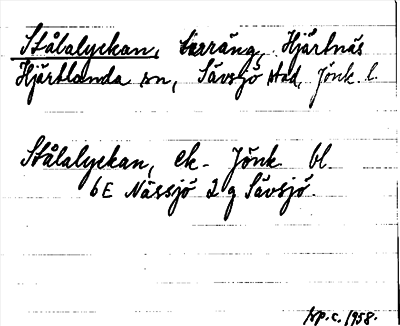 Stålalyckan, terräng, Hjärtnäs
Hjärtlanda sn, Sävsjö stad, Jönk. l.
Stålalyckan, ek. Jönk bl.
6E Nässjö 2 g Sävsjö.
1958.